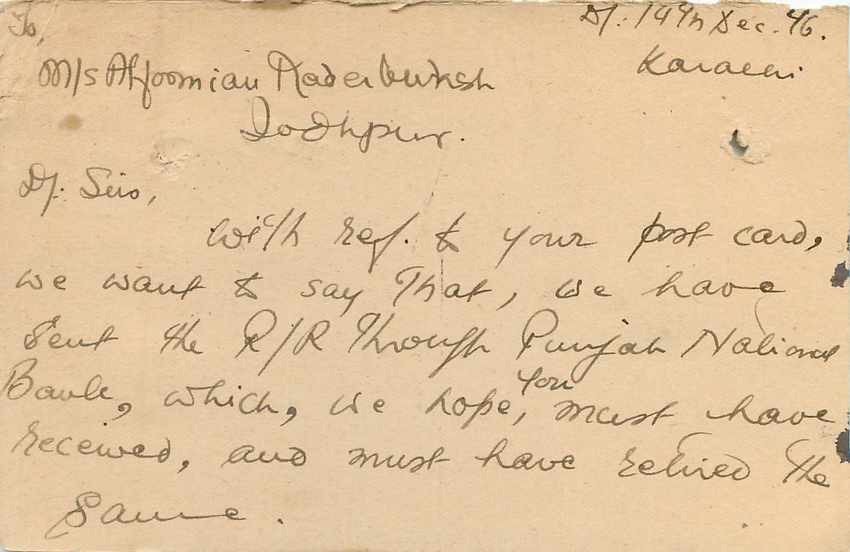 To,
Dt: 14th Dec. 46.
Karachi
M/s Kaderbuksh
Jodhpur.
Dr. Sirs,
With ref. to your post card,
we want to say That, we have
Sent the R/R Through Punjab National
Bank, which, we hope, you must have
received, and must have retired the
Same.